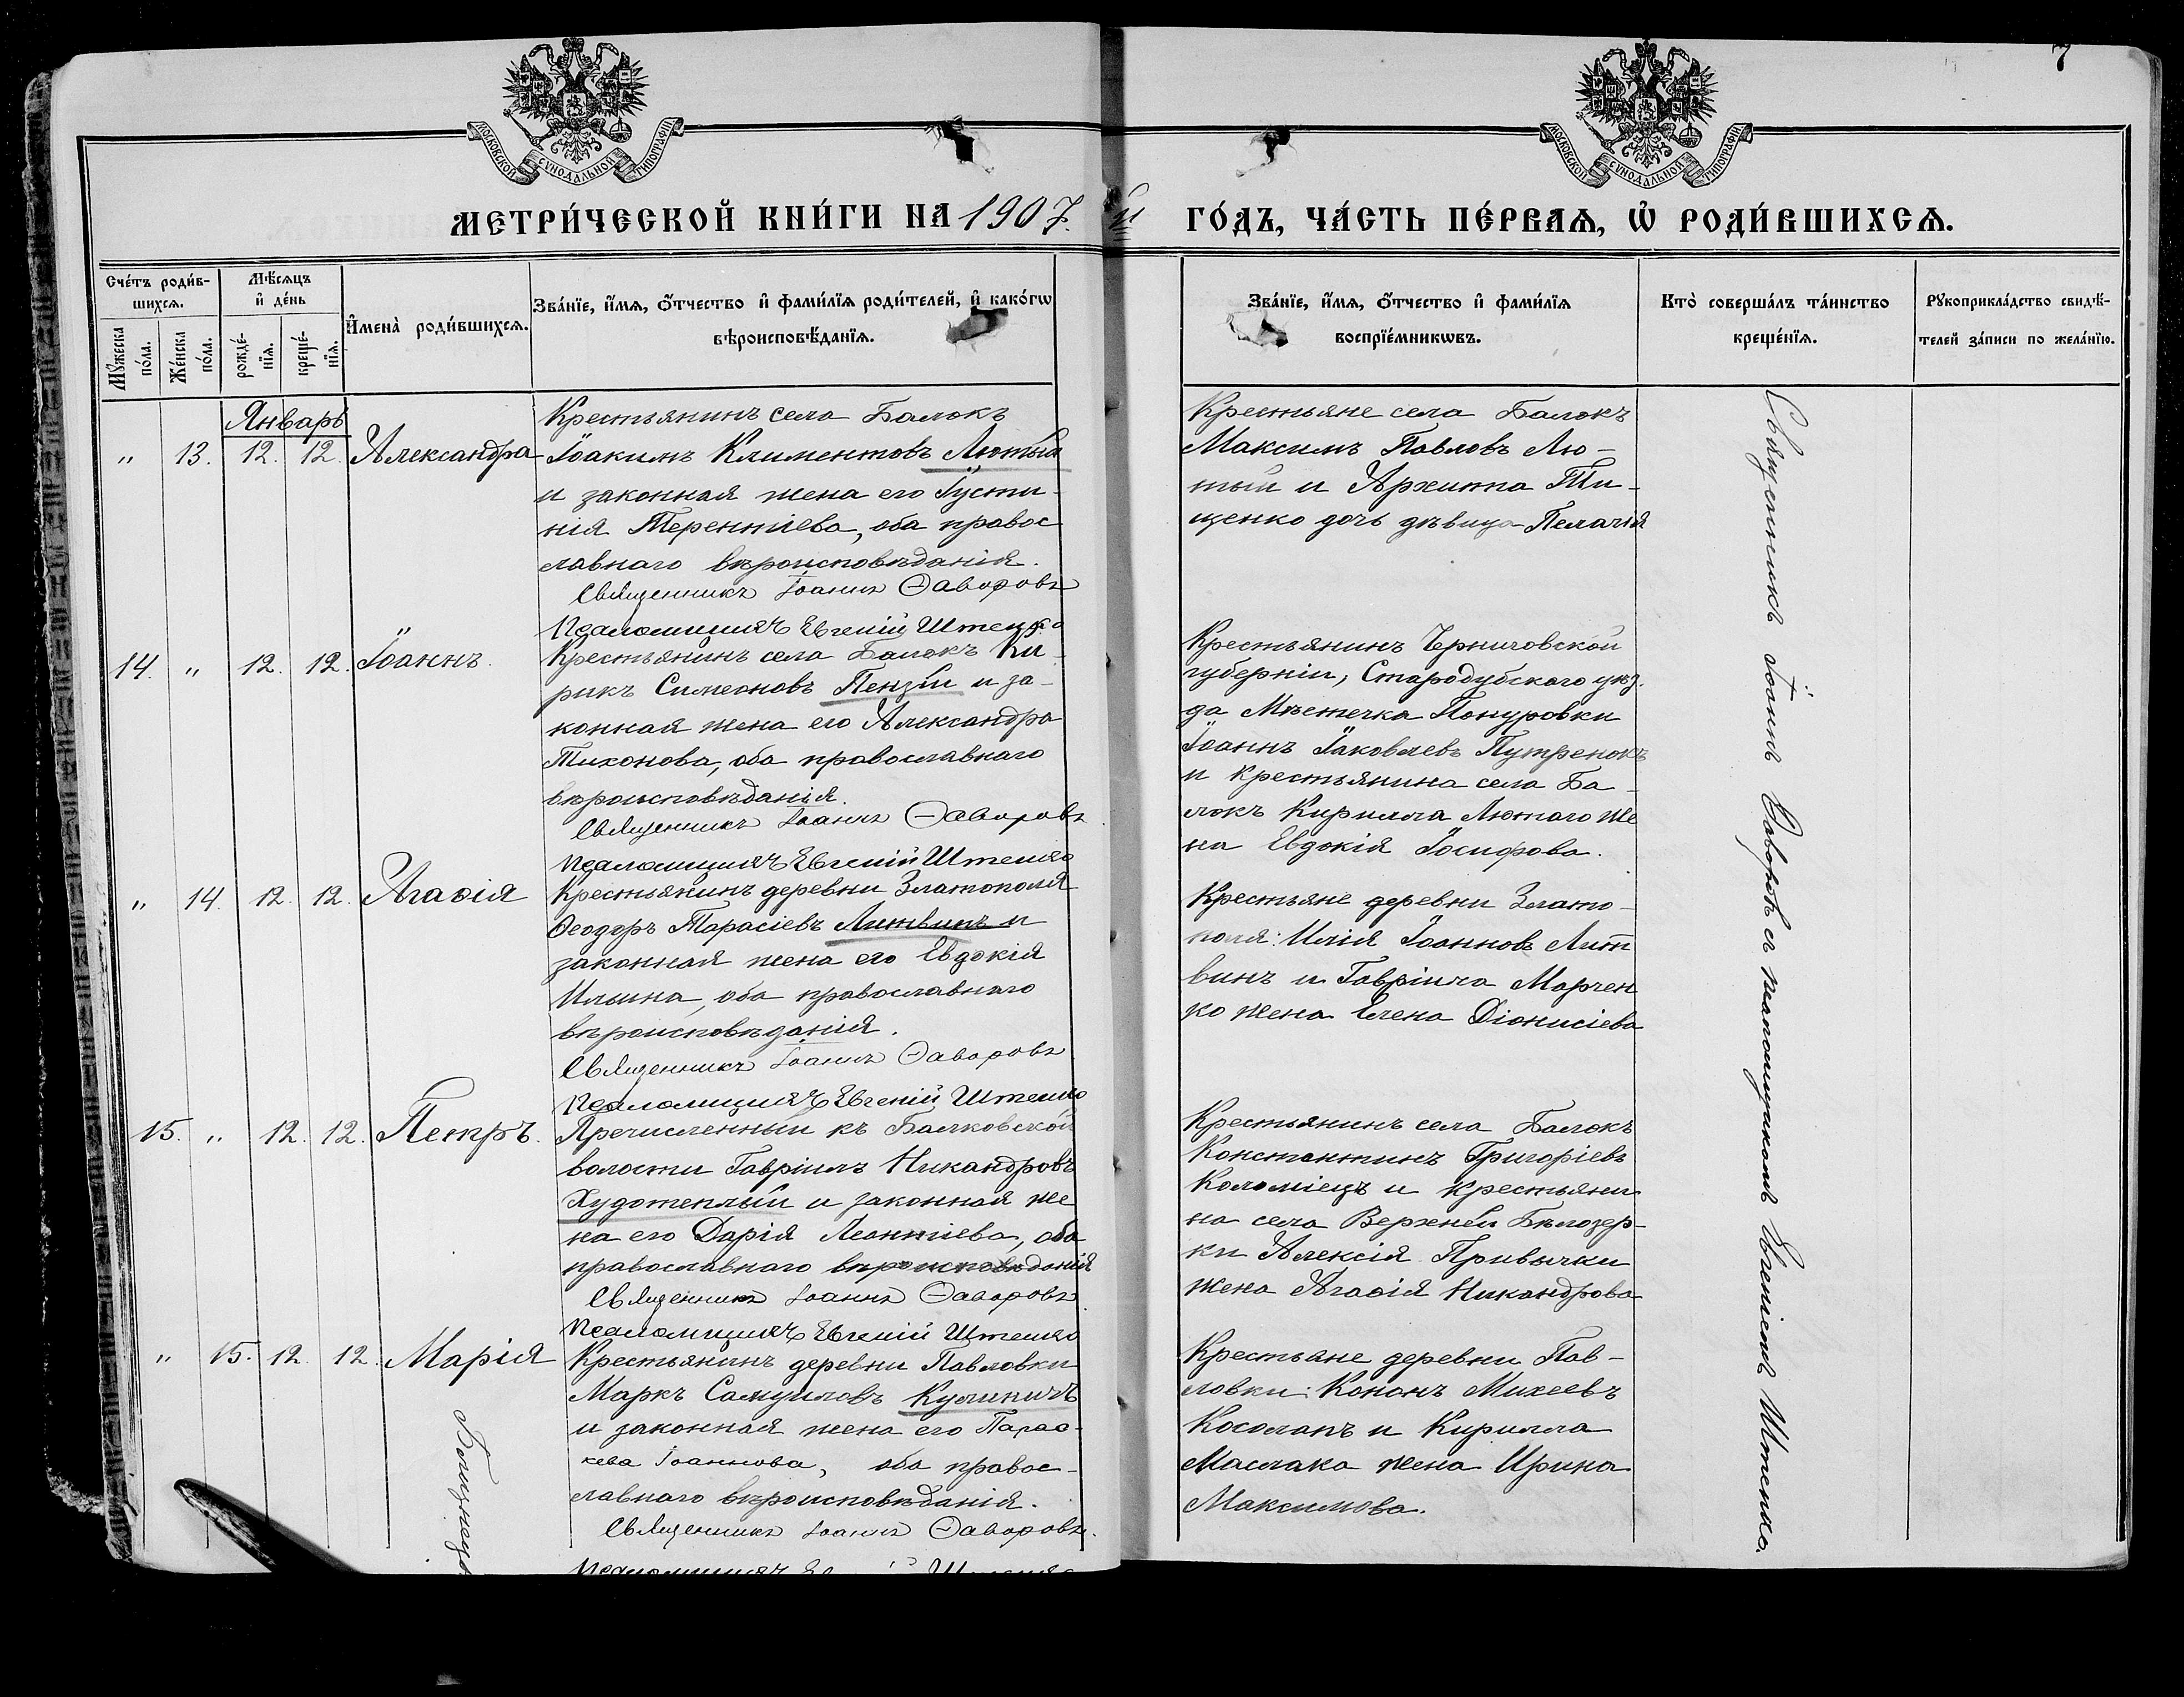 7
МОСКОВСКОЙ СУНОДАЛЬНОЙ ТИПОГРАФІИ
МОСКОВСКОЙ СУНОДАЛЬНОЙ ТИПОГРАФІИ
МЕТРИ́ЧЕСКОЙ КНИ́ГИ НА 1907. й ГО́ДЪ, ЧА́СТЬ ПЕ́РВАѦ, Ѡ РОДИ́ВШИХСѦ.
Сче́тъ роди́в-
шихсѧ.
Мꙋ́жеска
по́ла.
Же́нска
по́ла.
Мѣ́сѧцъ
и҆ де́нь
рожде́-
нїѧ.
креще́-
нїѧ.
И҆мена̀ роди́вшихсѧ.
Зва́нїе, и҆́мѧ, ѻ҆́тчество и҆ фами́лїѧ роди́телей, и҆ како́гѡ
вѣроисповѣ́данїѧ.
Зва́нїе, и҆́мѧ, ѻ҆́тчество и҆ фами́лїѧ
воспрїе́мникѡвъ.
Кто̀ соверша́лъ та́инство
креще́нїѧ.
Рꙋкоприкла́дство свидѣ́-
телей за́писи по жела́нїю.
Январь
" 13. 12. 12. Александра
Крестьянинъ села Балокъ
Іоакимъ Климентовъ Лютый
и законная жена его Іусти-
нія Терентіева, оба правос
лавнаго вѣроисповѣданія.
Священникъ Іоаннъ Ѳаворовъ
Псаломщикъ Евгеній Штенко
Крестьяне села Балокъ
Максимъ Павловъ Лю-
тый и Архиппа Ти-
щенко дочь дѣвица Пелагія
14. " 12. 12. Іоаннъ.
Крестьянинъ села Балокъ Ки-
рикъ Симеоновъ Пензій и за-
конная жена его Александра
Тихонова, оба православнаго
вѣроисповѣданія.
Священникъ Іоаннъ Ѳаворовъ
Псаломщикъ Евгеній Штенко
Крестьянинъ Черниговской
губерніи, Стародубскаго уѣз-
да Мѣстечка Понуровки
Іоаннъ Іаковлевъ Путренокъ
и крестьянина села Ба-
локъ Кирилла Лютаго же
на Евдокія Іосифова.
" 14. 12. 12. Агаѳія
Крестьянинъ деревни Златополя
Ѳеодоръ Тарасіевъ Литвинъ и
законная жена его Евдокія
Ильина, оба православнаго
вѣроисповѣданія.
Священникъ Іоаннъ Ѳаворовъ
Псаломщикъ Евгеній Штенко
Крестьяне деревни Злато-
поля: Илія Іоанновъ Лит
винъ и Гавріила Марчен
ко жена Елена Діонисіева
15. " 12. 12. Петръ.
Пречисленный къ Балковской
волости Гавріилъ Никандровъ
Худотеплый и законная же
на его Дарія Леонтіева, оба
православнаго вѣроисповѣданія
Священникъ Іоаннъ Ѳаворовъ
Псаломщикъ Евгеній Штенко
Крестьянинъ села Балокъ
Константинъ Григоріевъ
Коломіецъ и крестьяни
на села Верхней Бѣлозер-
ки Алексія Привычки
жена Агаѳія Никандрова
" 15. 12. 12. Марія
Близнецы
Крестьянинъ деревни Павловки
Маркъ Самуиловъ Куликичъ
и законная жена его Парас-
кева Іоаннова, оба правос-
лавнаго вѣроисповѣданія.
Священникъ Іоаннъ Ѳаворовъ.
Крестьане деревни Пав-
ловки: Кононъ Михеевъ
Косолапъ и Кирилла
Маслака жена Ирина
Максимова.
Священникъ Іоаннъ Ѳаворовъ съ псаломщикомъ Евгеніемъ Штенко.